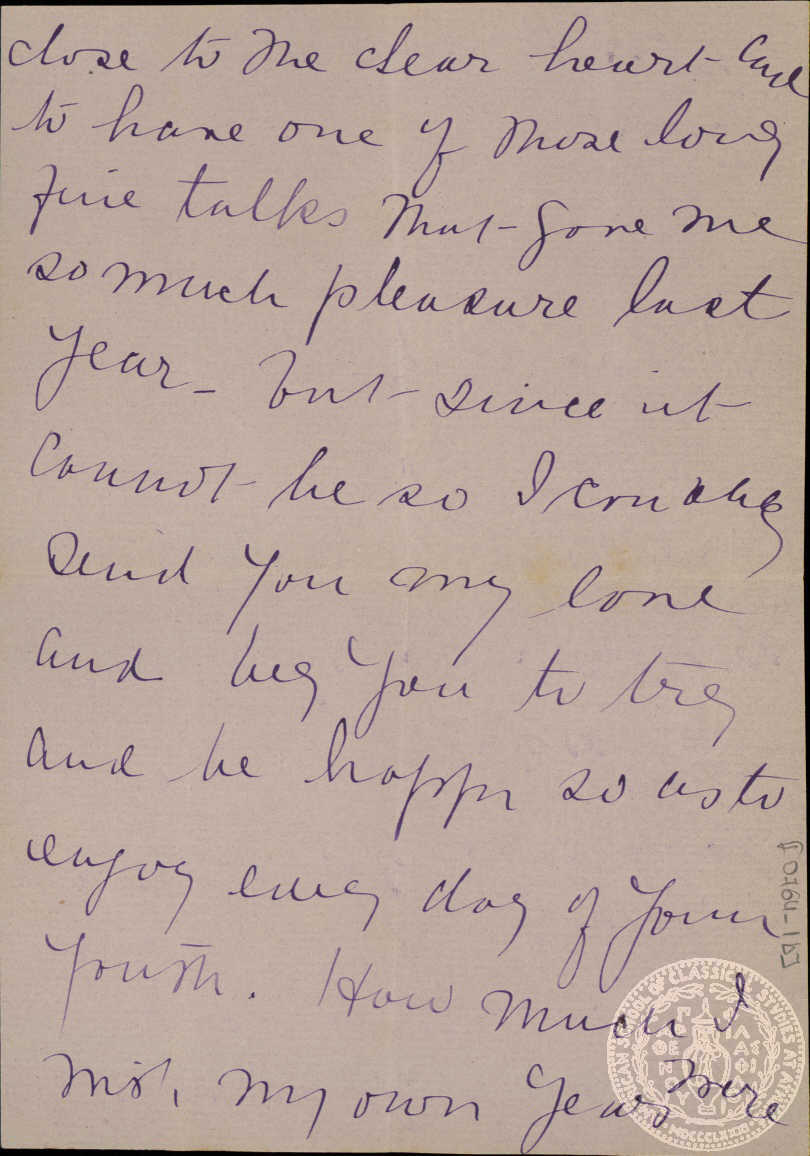 close to me dear heart - and
to have one of those long
fine talks that - gave me
so much pleasure last
year - but - since it
cannot be so I can only
send you my love
and beg you to try
and be happy so as to
enjoy every day of your
youth. How much I
wish, my own years were
AMERICAN SCHOOL OF CLASSICAL STUDIES AT ATHENS
MDCCCLXXXI
ΠΑΡΘΕΝΟΥ ΦΙΛΑΣ